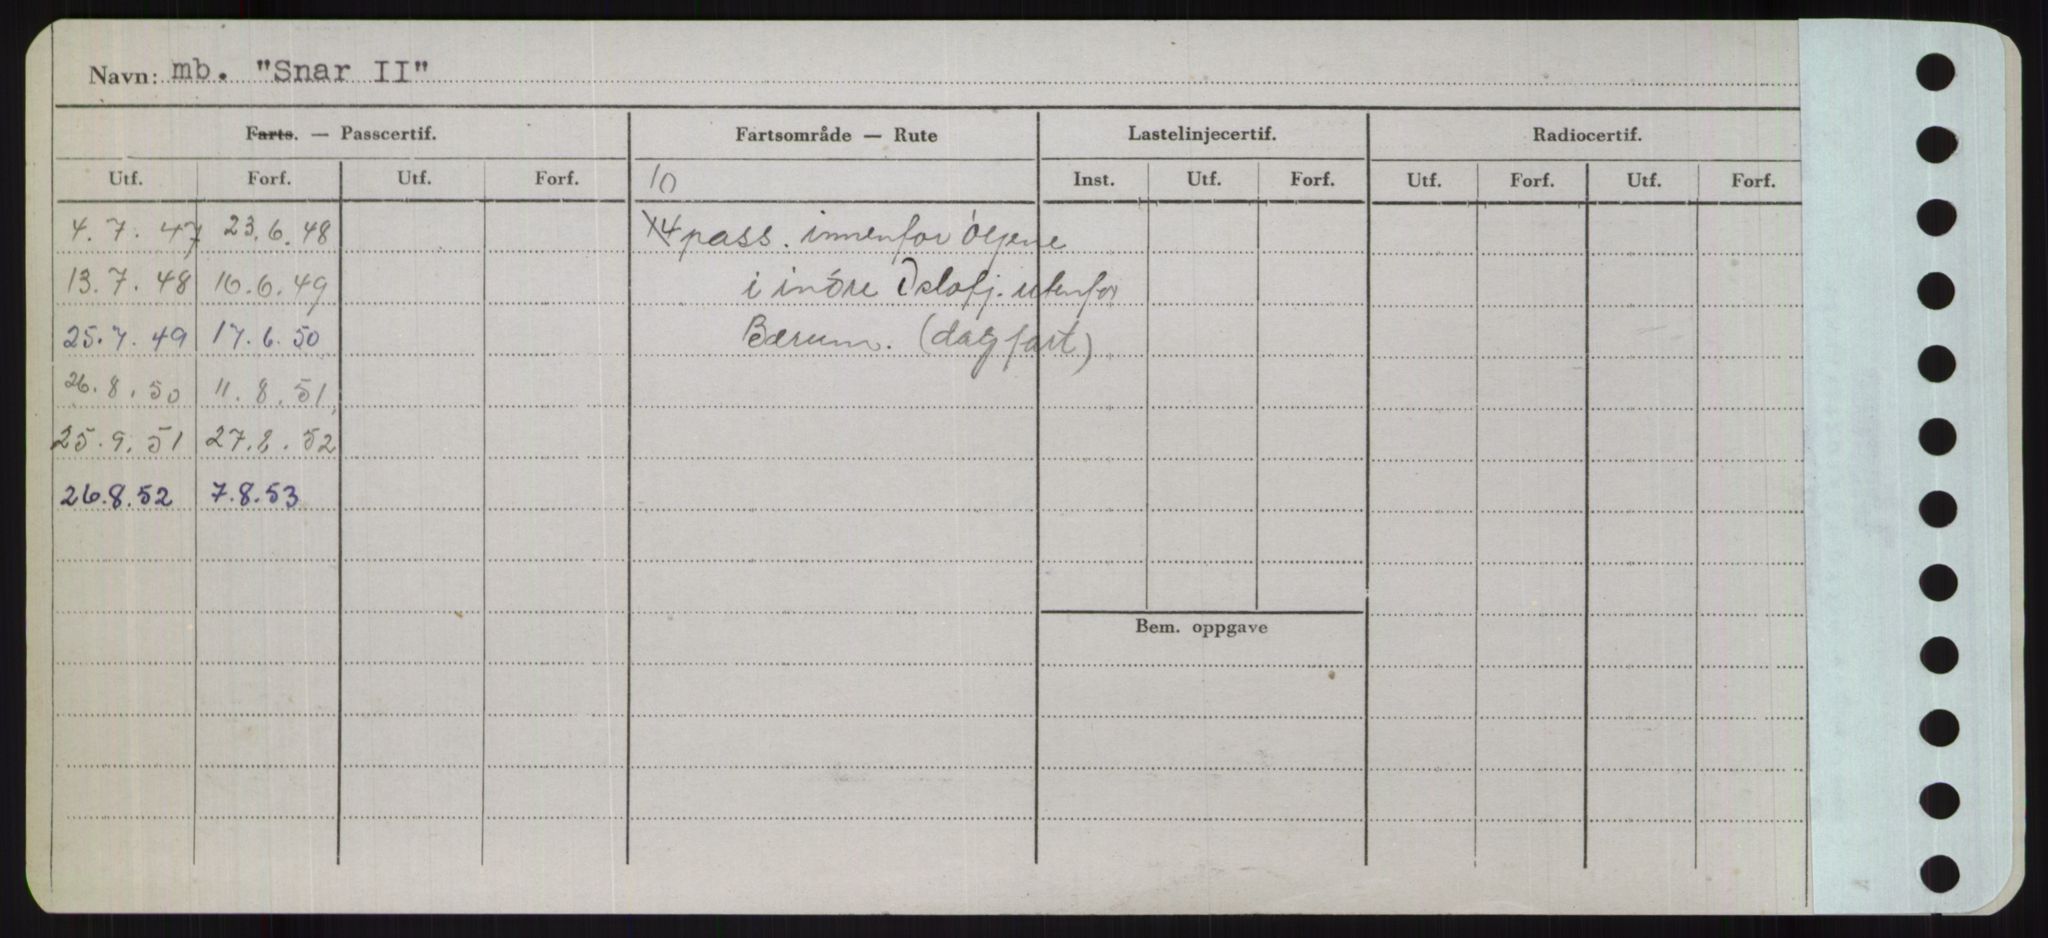 Navn: mb. "Snar II"
Farts. — Passcertif. Fartsområde — Rute Lastelinjecertif. Radiocertif.
Utf. Forf. Utf. Forf. 10 Inst. Utf. Forf. Utf. Forf. Utf. Forf.
4.7.47 23.6.48 14 pass. innenfor öyene
13.7.48 16.6.49 i indre Oslofj. utenfor
25.7.49 17.6.50 Bærum. (dagfart)
26.8.50 11.8.51
25.9.51 27.8.52
26.8.52 7.8.53
Bem. oppgave